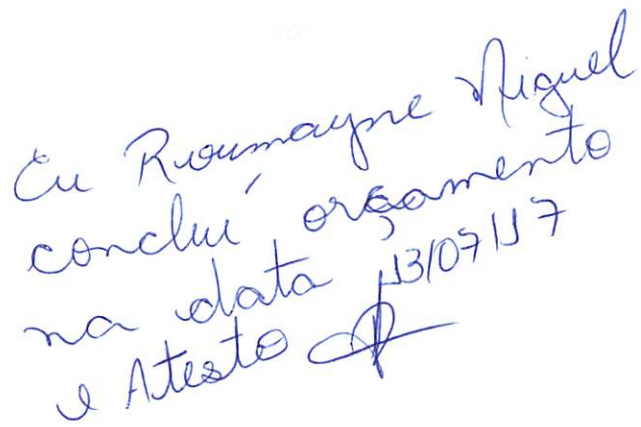 Eu Roumayne Miguel
conclui orçamento
na data 13/07/17
e Atesto